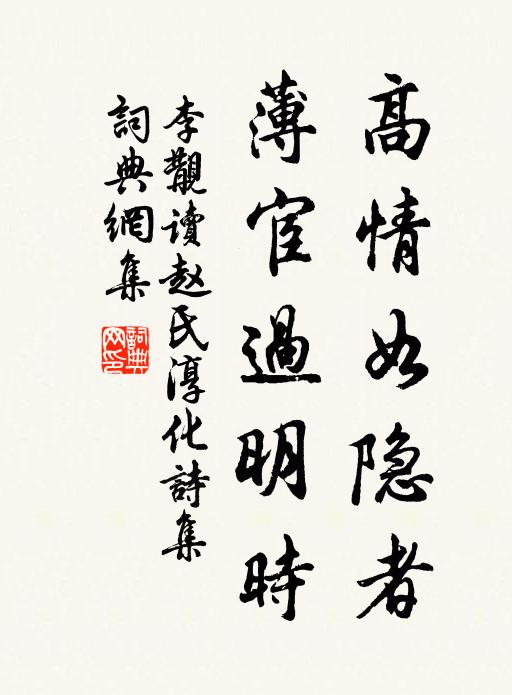 高情如隐者
薄宦過明時
李覯读赵氏淳化詩集
詞典網集
詞典网印